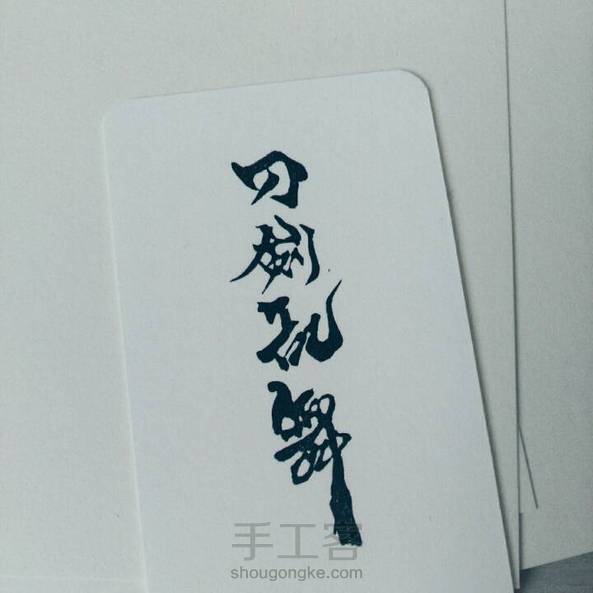 刀剣乱舞
手工客
shougongke.com